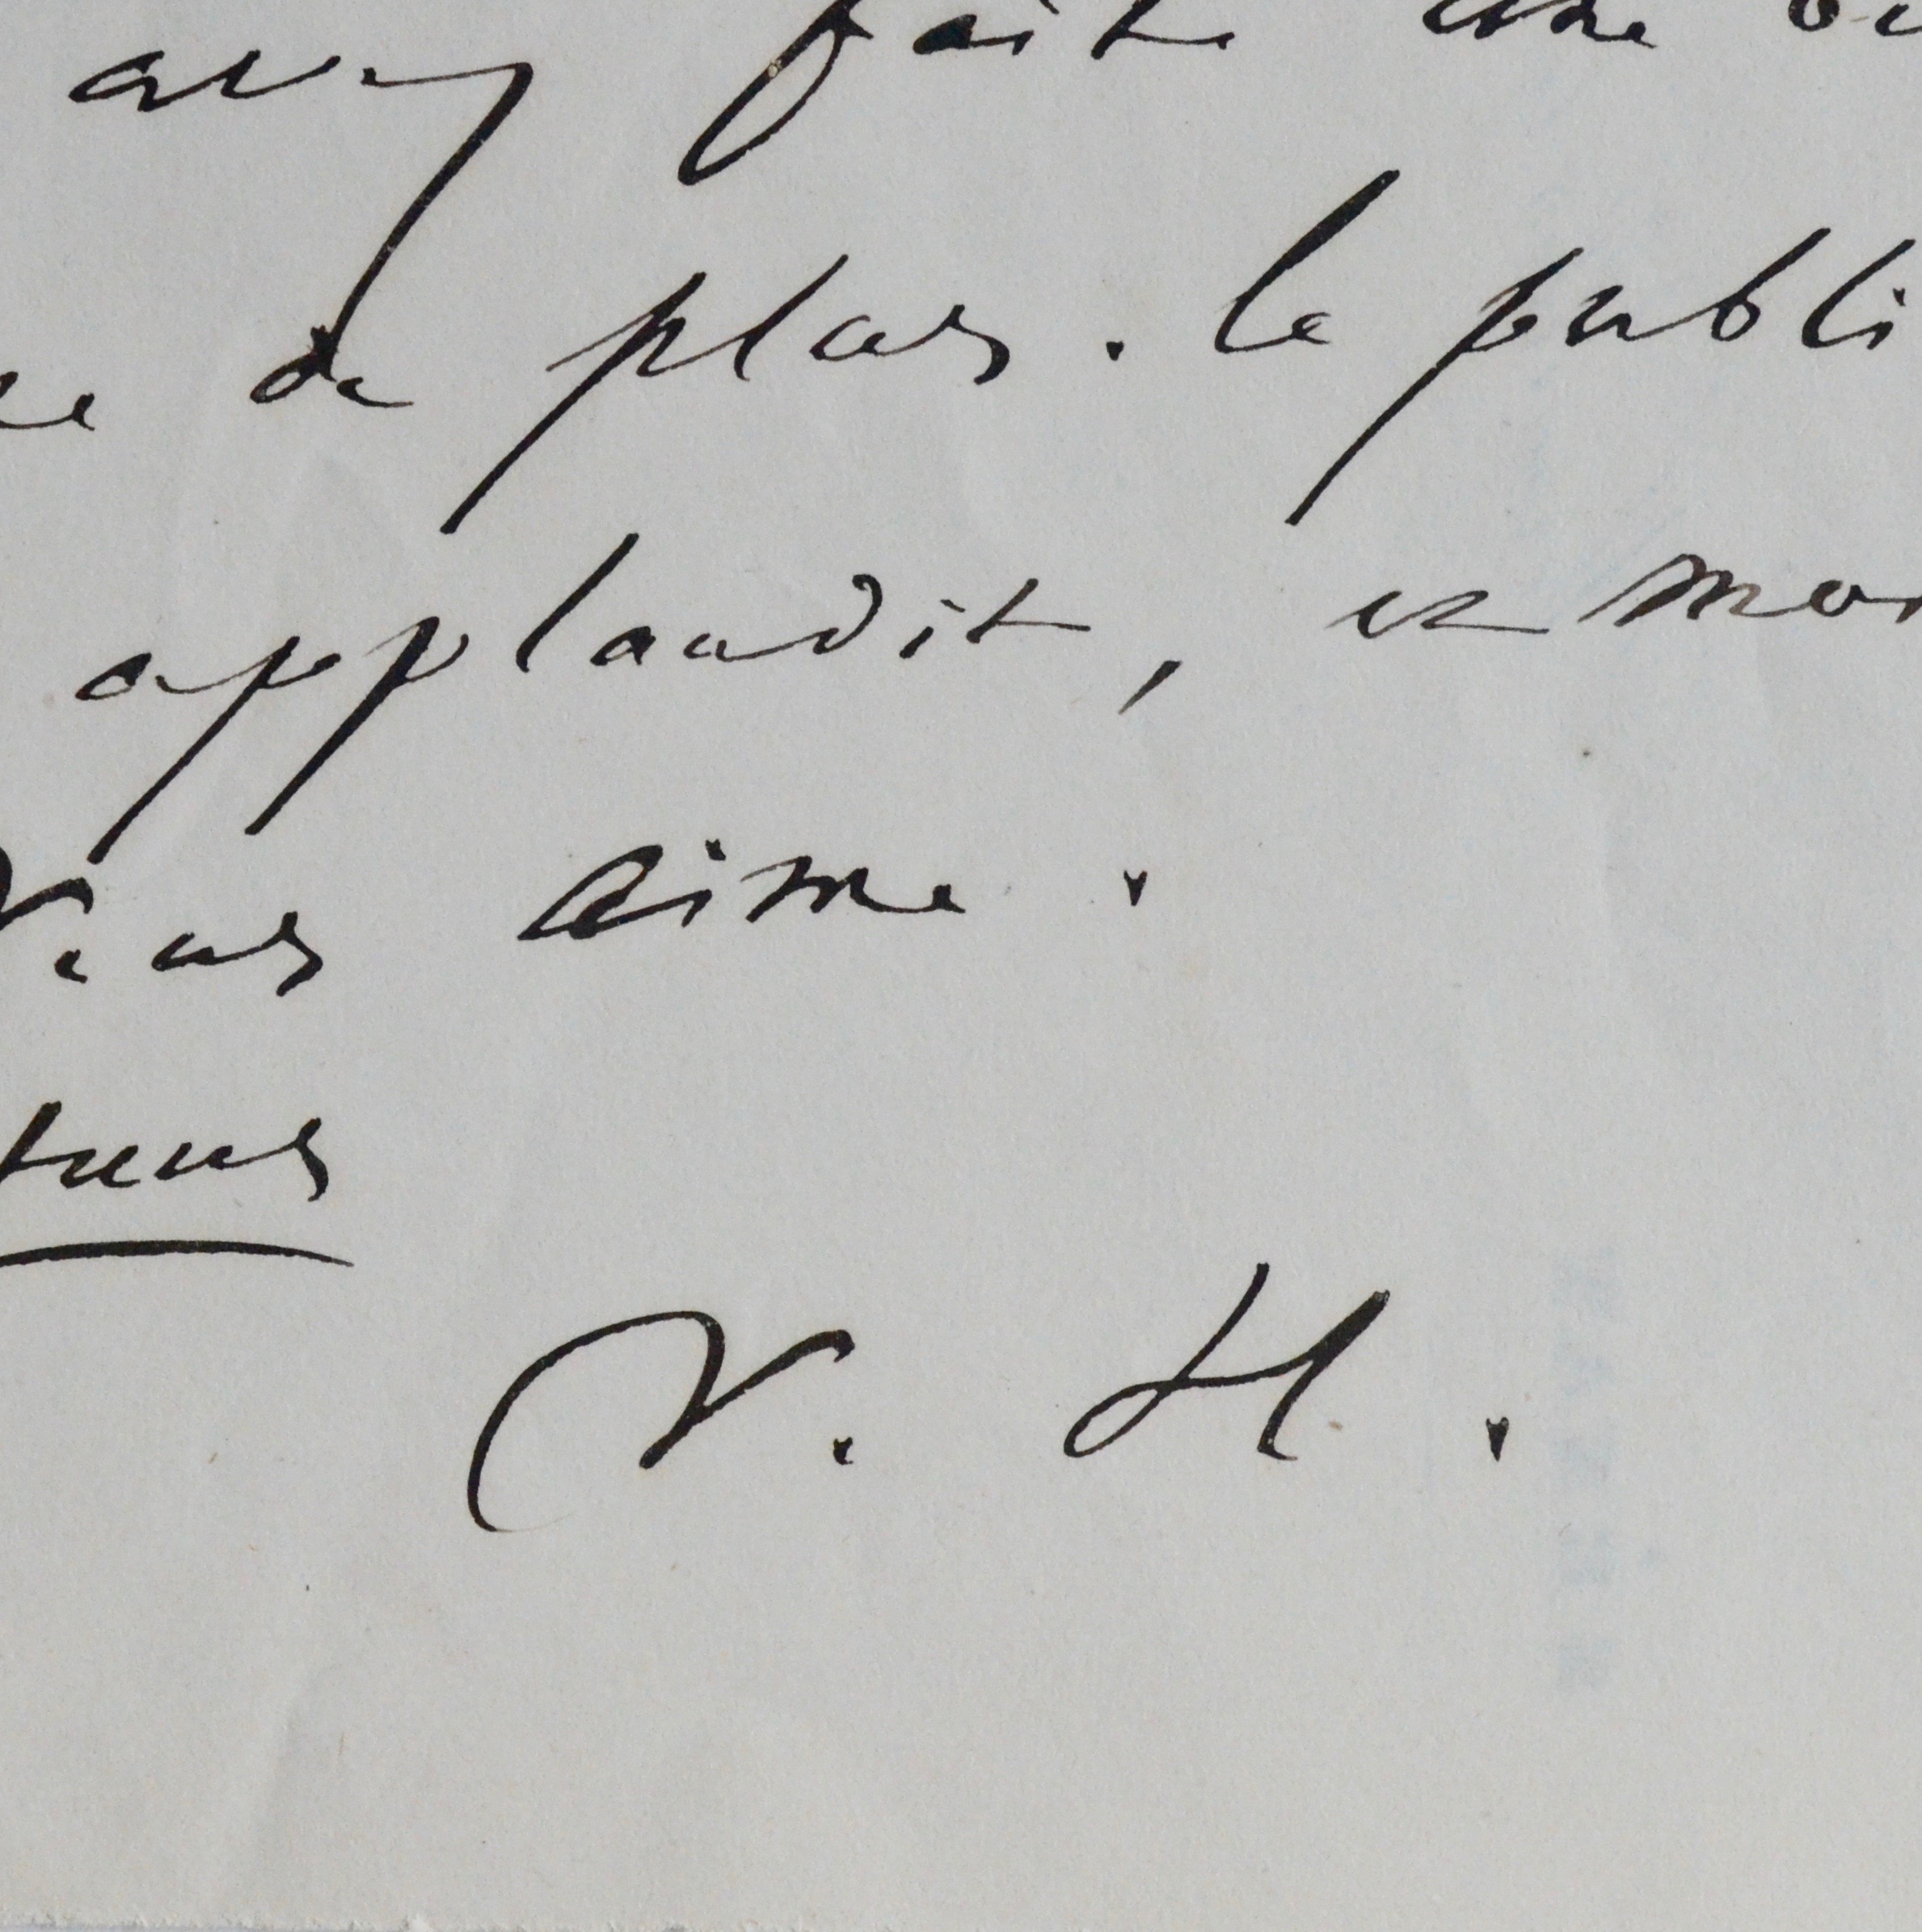 avez faite une
de plus. le publi
applaudit, et moi
vous aime.
tuus
V. H.